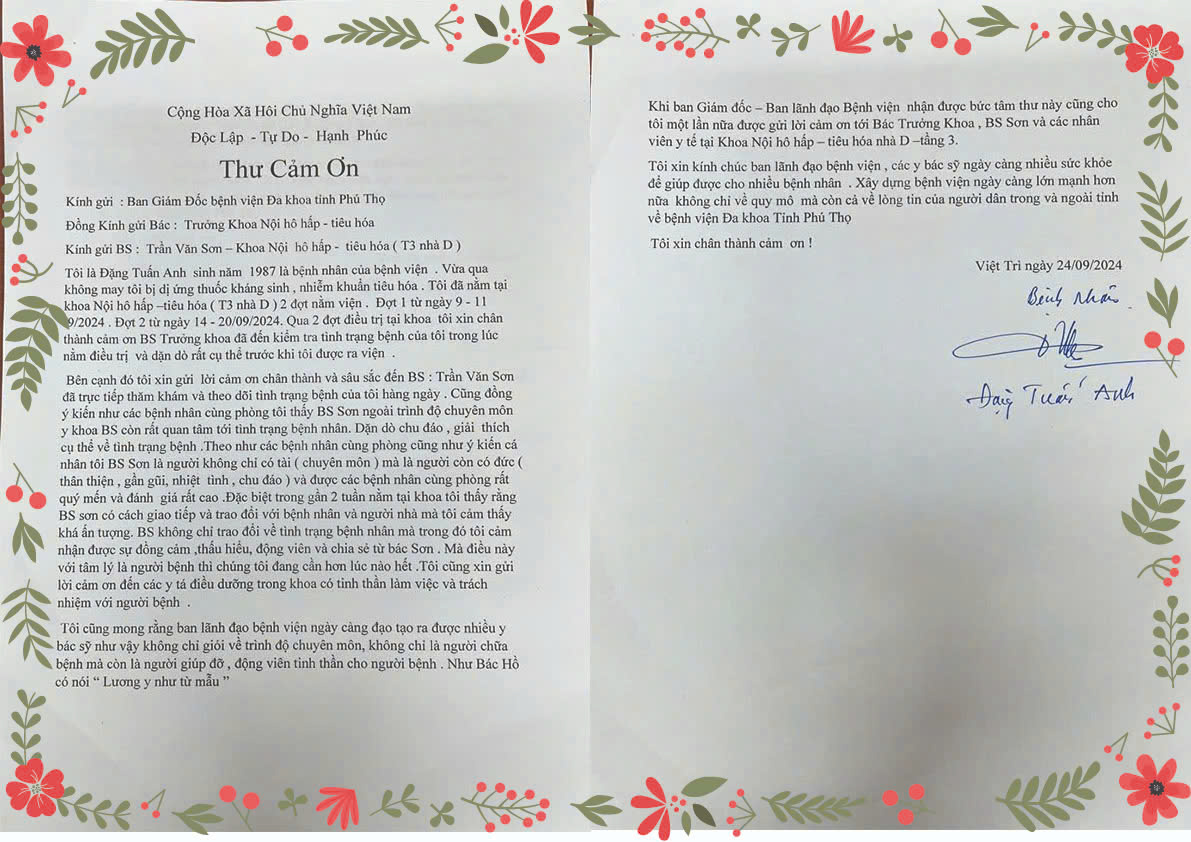 Cộng Hòa Xã Hôi Chủ Nghĩa Việt Nam
Độc Lập - Tự Do - Hạnh Phúc
Thư Cảm Ơn
Kính gửi : Ban Giám Đốc bệnh viện Đa khoa tỉnh Phú Thọ
Đồng Kính gửi Bác : Trưởng Khoa Nội hô hấp - tiêu hóa
Kính gửi BS : Trần Văn Sơn – Khoa Nội hô hấp - tiêu hóa ( T3 nhà D )
Tôi là Đặng Tuấn Anh sinh năm 1987 là bệnh nhân của bệnh viện . Vừa qua
không may tôi bị dị ứng thuốc kháng sinh , nhiễm khuẩn tiêu hóa . Tôi đã nằm tại
khoa Nội hô hấp –tiêu hóa ( T3 nhà D ) 2 đợt nằm viện . Đợt 1 từ ngày 9 - 11
9/2024 . Đợt 2 từ ngày 14 - 20/09/2024. Qua 2 đợt điều trị tại khoa tôi xin chân
thành cảm ơn BS Trưởng khoa đã đến kiểm tra tình trạng bệnh của tôi trong lúc
nằm điều trị và dặn dò rất cụ thể trước khi tôi được ra viện .
Bên cạnh đó tôi xin gửi lời cảm ơn chân thành và sâu sắc đến BS : Trần Văn Sơn
đã trực tiếp thăm khám và theo dõi tình trạng bệnh của tôi hàng ngày . Cũng đồng
ý kiến như các bệnh nhân cùng phòng tôi thấy BS Sơn ngoài trình độ chuyên môn
y khoa BS còn rất quan tâm tới tình trạng bệnh nhân. Dặn dò chu đáo , giải thích
cụ thể về tình trạng bệnh .Theo như các bệnh nhân cùng phòng cũng như ý kiến cá
nhân tôi BS Sơn là người không chỉ có tài ( chuyên môn ) mà là người còn có đức (
thân thiện , gần gũi, nhiệt tình , chu đáo ) và được các bệnh nhân cùng phòng rất
quý mến và đánh giá rất cao .Đặc biệt trong gần 2 tuần nằm tại khoa tôi thấy rằng
BS sơn có cách giao tiếp và trao đổi với bệnh nhân và người nhà mà tôi cảm thấy
khá ấn tượng. BS không chỉ trao đổi về tình trạng bệnh nhân mà trong đó tôi cảm
nhận được sự đồng cảm ,thấu hiểu, động viên và chia sẻ từ bác Sơn . Mà điều này
với tâm lý là người bệnh thì chúng tôi đang cần hơn lúc nào hết .Tôi cũng xin gửi
lời cảm ơn đến các y tá điều dưỡng trong khoa có tinh thần làm việc và trách
nhiệm với người bệnh .
Tôi cũng mong rằng ban lãnh đạo bệnh viện ngày càng đạo tạo ra được nhiều y
bác sỹ như vậy không chỉ giỏi về trình độ chuyên môn, không chỉ là người chữa
bệnh mà còn là người giúp đỡ , động viên tinh thần cho người bệnh . Như Bác Hồ
có nói “ Lương y như từ mẫu ”
Khi ban Giám đốc – Ban lãnh đạo Bệnh viện nhận được bức tâm thư này cũng cho
tôi một lần nữa được gửi lời cảm ơn tới Bác Trưởng Khoa , BS Sơn và các nhân
viên y tế tại Khoa Nội hô hấp – tiêu hóa nhà D –tầng 3.
Tôi xin kính chúc ban lãnh đạo bệnh viện , các y bác sỹ ngày càng nhiều sức khỏe
để giúp được cho nhiều bệnh nhân . Xây dựng bệnh viện ngày càng lớn mạnh hơn
nữa không chỉ về quy mô mà còn cả về lòng tin của người dân trong và ngoài tỉnh
về bệnh viện Đa khoa Tỉnh Phú Thọ
Tôi xin chân thành cảm ơn !
Việt Trì ngày 24/09/2024
Bệnh Nhân
Đặng Tuấn Anh